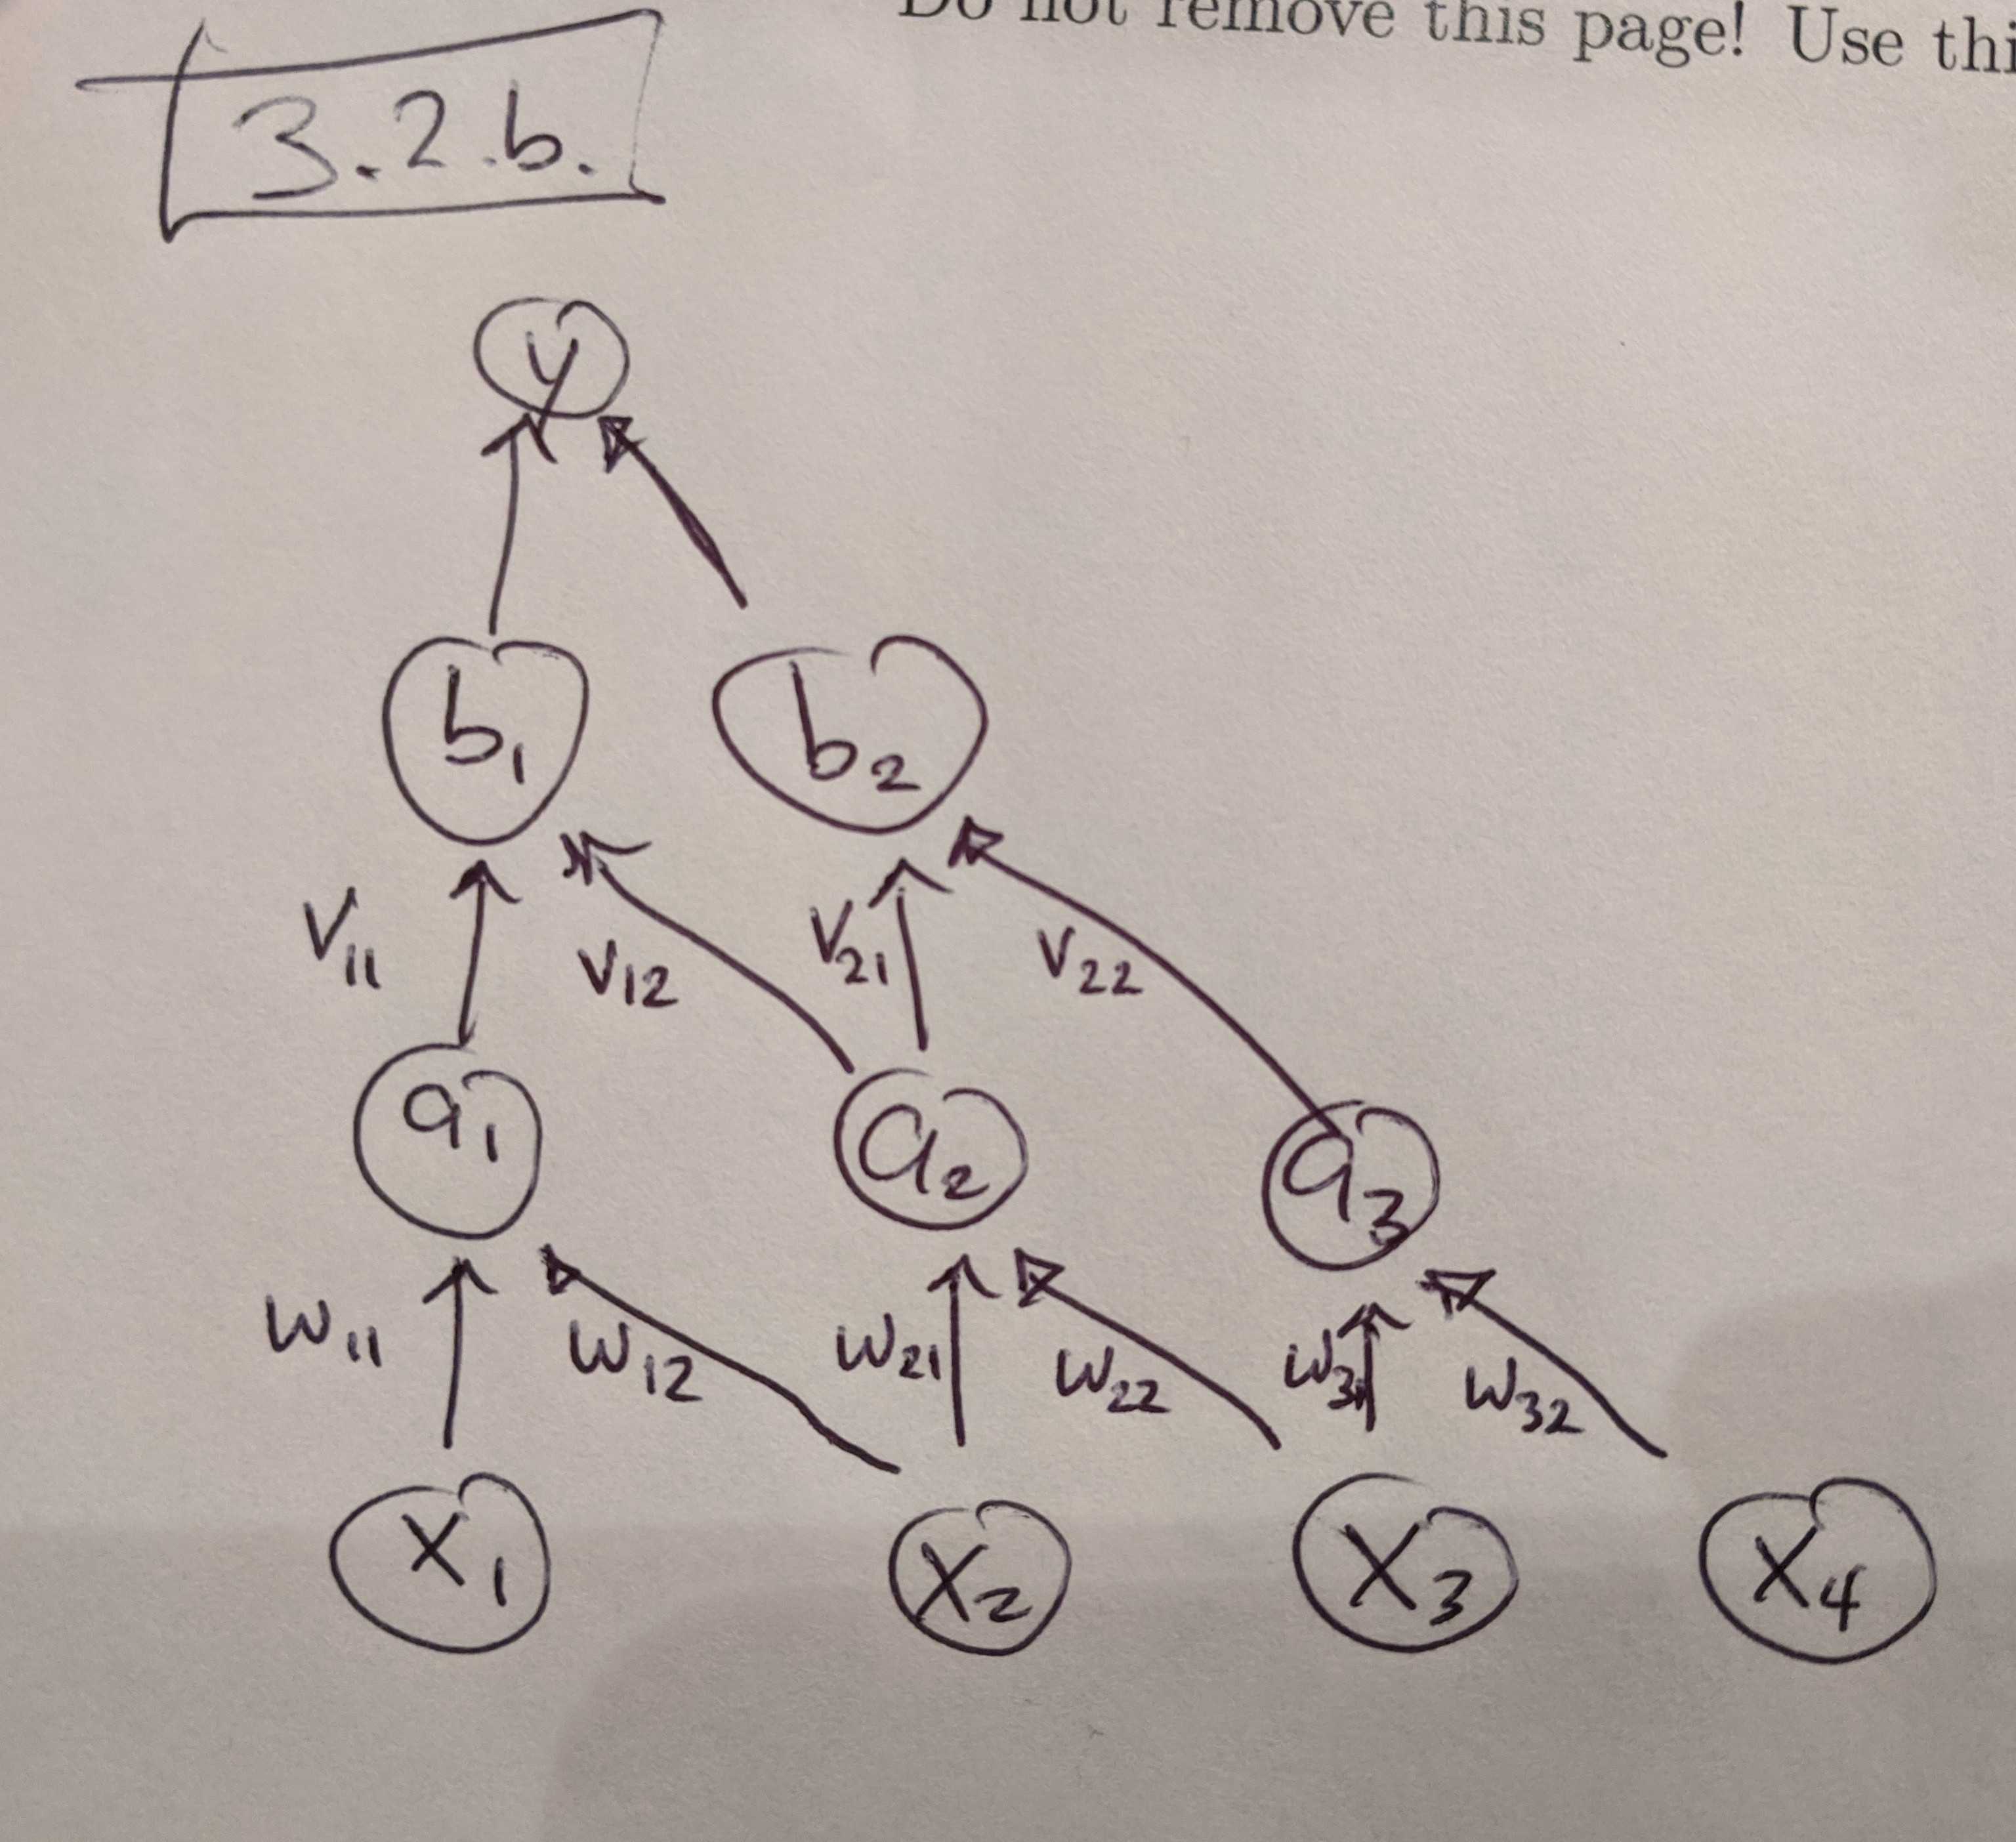 Do not remove this page! Use thi
3.2.b.
y
b1 b2
V11 V12 V21 V22
a1 a2 a3
W11 W12 W21 W22 W31 W32
X1 X2 X3 X4